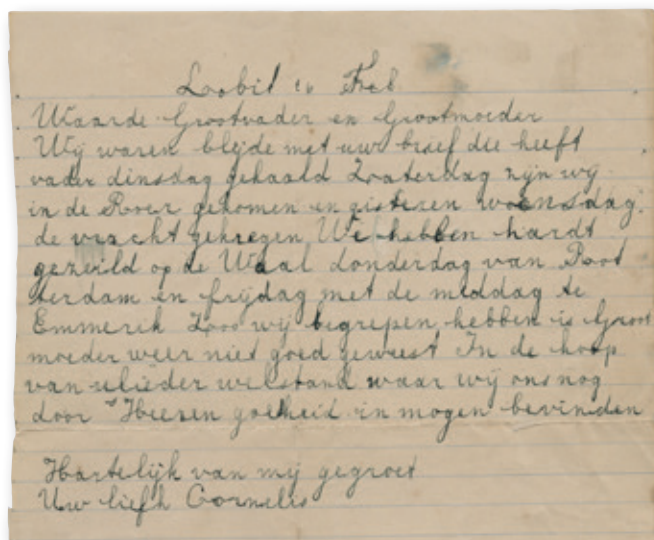 Lobit 16 Feb
Waarde Grootvader en Grootmoeder
Wij waren blijde met uw brief die heeft
vader dinsdag gehaald Zaaterdag zijn wij
in de Roer gekomen en gisteren woensdag
de vracht gekregen We hebben hardt
gezeild op de Waal donderdag van Root
terdam en frijdag met de middag te
Emmerik Zoo wij begrepen hebben is Groot
moeder weer niet goed geweest In de hoop
van ulieder welstand waar wij ons nog
door s Heeren goedheid in mogen bevinden
Hartelijk van mij gegroet
Uw liefh Cornelis